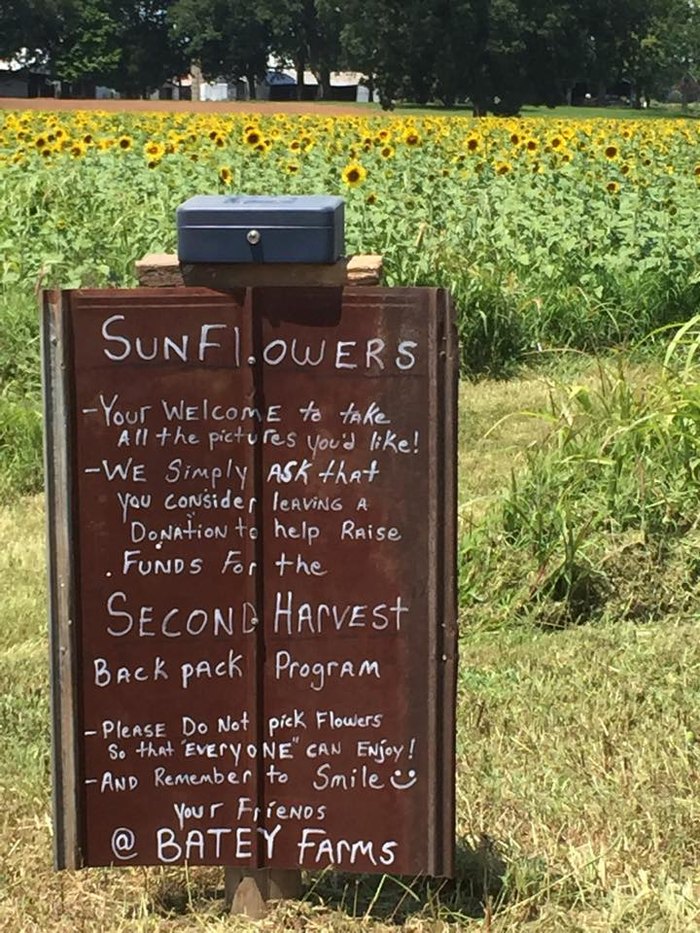 SUNFLOWERS
-Your WELCOME to take
All the pictures you'd like!
-WE Simply ASK that
you consider leaving A
DONAtion to help Raise
FUNDS For the
SECOND HArvest
BACk pAck Program
-PleASE Do Not pick Flowers
So that "EVERYONE" CAN ENjoy!
-AND Remember to Smile
your Friends
@ BATEY FArms